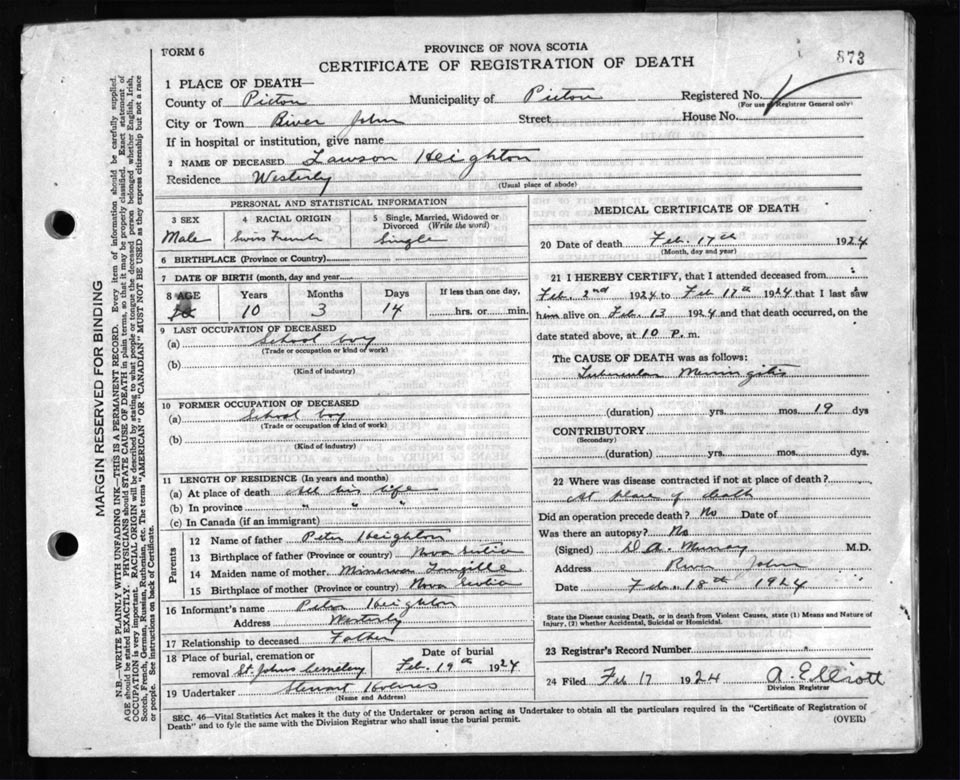 FORM 6
PROVINCE OF NOVA SCOTIA
CERTIFICATE OF REGISTRATION OF DEATH
873
1 PLACE OF DEATH—
County of Pictou Municipality of Pictou Registered No.
(For use of Registrar General only)
City or Town River John Street House No.
If in hospital or institution, give name
2 NAME OF DECEASED Lawson Heighton
Residence Westerly
(Usual place of abode)
PERSONAL AND STATISTICAL INFORMATION
3 SEX 4 RACIAL ORIGIN 5 Single, Married, Widowed or Divorced (Write the word)
Male Swiss French Single
6 BIRTHPLACE (Province or Country)
7 DATE OF BIRTH (month, day and year)
8 AGE Years Months Days If less than one day,
10 3 14 hrs. or min.
9 LAST OCCUPATION OF DECEASED
(a) School boy
(Trade or occupation or kind of work)
(b)
(Kind of industry)
10 FORMER OCCUPATION OF DECEASED
(a) School boy
(Trade or occupation or kind of work)
(b)
(Kind of industry)
11 LENGTH OF RESIDENCE (In years and months)
(a) At place of death All his life
(b) In province " " "
(c) In Canada (if an immigrant)
Parents
12 Name of father Peter Heighton
13 Birthplace of father (Province or country) Nova Scotia
14 Maiden name of mother Minerva Langille
15 Birthplace of mother (Province or country) Nova Scotia
16 Informant's name Peter Heighton
Address Westerly
17 Relationship to deceased Father
18 Place of burial, cremation or removal St. Johns Cemetery Date of burial Feb. 19th 1924
19 Undertaker Stewart Holmes
(Name and Address)
MEDICAL CERTIFICATE OF DEATH
20 Date of death Feb. 17th 1924
(Month, day and year)
21 I HEREBY CERTIFY, that I attended deceased from
Feb. 2nd 1924 to Feb 17th 1924 that I last saw
him alive on Feb. 13 1924 and that death occurred, on the
date stated above, at 10 P. m.
The CAUSE OF DEATH was as follows:
Tubercular Meningitis
(duration) yrs. mos. 19 dys
CONTRIBUTORY
(Secondary)
(duration) yrs. mos. dys.
22 Where was disease contracted if not at place of death?
At place of death
Did an operation precede death? No Date of
Was there an autopsy? No
(Signed) D A. Murray M.D.
Address River John
Date Feb. 18th 1924
State the disease causing Death, or in death from Violent Causes, state (1) Means and Nature of
Injury, (2) whether Accidental, Suicidal or Homicidal.
23 Registrar's Record Number
24 Filed Feb 17 1924 A. Elliott
Division Registrar
SEC. 46—Vital Statistics Act makes it the duty of the Undertaker or person acting as Undertaker to obtain all the particulars required in the "Certificate of Registration of
Death" and to fyle the same with the Division Registrar who shall issue the burial permit.
(OVER)
MARGIN RESERVED FOR BINDING
N.B.—WRITE PLAINLY WITH UNFADING INK—THIS IS A PERMANENT RECORD. Every item of information should be carefully supplied.
AGE should be stated EXACTLY. PHYSICIANS should STATE CAUSE OF DEATH in plain terms, so that it may be properly classified. Exact statement of
OCCUPATION is very important. RACIAL ORIGIN will be described by stating to what people or tongue the deceased person belonged whether English, Irish,
Scotch, French, German, Russian, Ruthenian, etc. The terms "AMERICAN" OR "CANADIAN" MUST NOT BE USED as they express citizenship but not a race
or people. See instructions on back of Certificate.